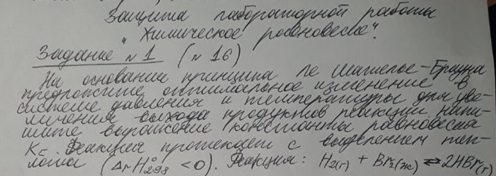 Защита лабораторной работы
"Химическое равновесие".
Задание №1 (№16)
На основании принципа Ле Шателье-Брауна
предложите оптимальное изменение в
системе давления и температуры для уве-
личения выхода продуктов реакции, напи-
шите выражение константы равновесия
Kc. Реакция протекает с выделением теп-
лоты (ΔrH°298 < 0). Реакция: H2(г) + Br2(ж) ⇌ 2HBr(г)